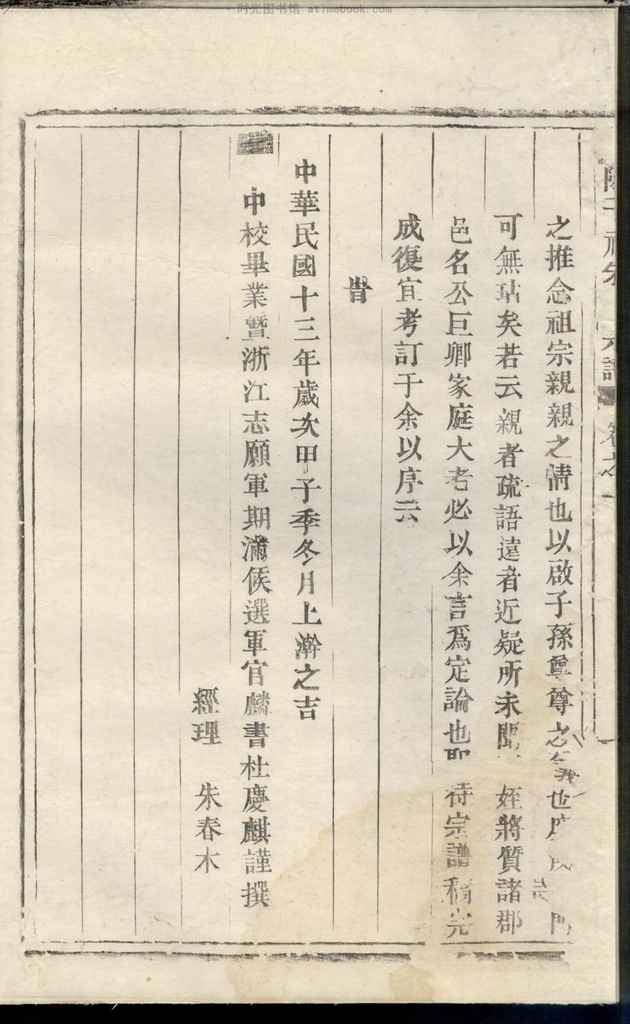 时光图书馆 atimebook.com
之推念祖宗親親之情也以啟子孫尊尊之義也
可無玷矣若云親者疏語遠者近疑所未聞 姪將質諸郡
邑名公巨卿家庭大老必以余言爲定論也 待宗譜稿完
成復宜考訂于余以序云
旹
中華民國十三年歲次甲子季冬月上澣之吉
中校畢業暨浙江志願軍期滿候選軍官麟書杜慶麒謹撰
經理 朱春木